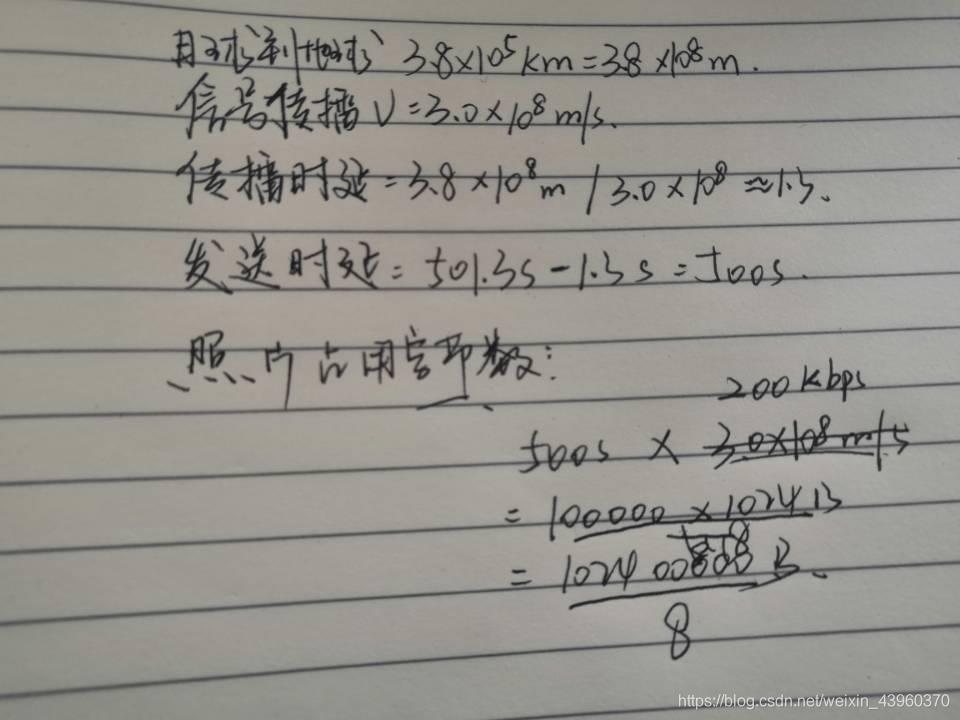 月球到地球 3.8×10⁵km=3.8×10⁸m.
信号传播V=3.0×10⁸m/s.
传播时延=3.8×10⁸m/3.0×10⁸≈1.3.
发送时延=501.3s-1.3s=500s.
照片占用字节数:
200kbps
500s × 3.0×10⁸m/s
=100000×1024B
8
=102400000B.
8
https://blog.csdn.net/weixin_43960370